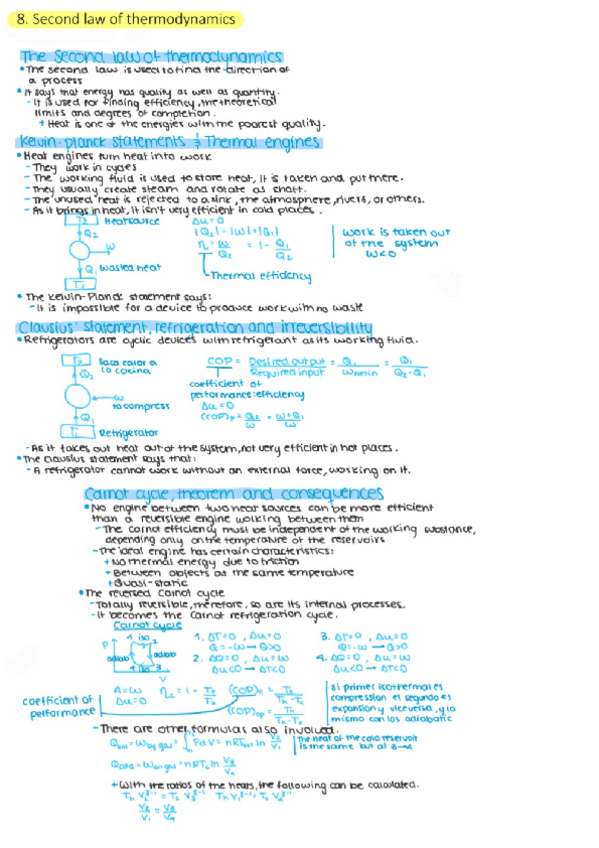 8. Second law of thermodynamics
The second law of thermodynamics
• The second law is used to find the direction of
a process
• It says that energy has quality as well as quantity.
- It is used for finding efficiency, the theoretical
limits and degrees of completion.
+ Heat is one of the energies with the poorest quality.
Kelvin-planck statements & Thermal engines
• Heat engines turn heat into work
- They work in cycles
- The working fluid is used to store heat, it is taken and put there.
- They usually create steam and rotate as shaft.
- The unused heat is rejected to a sink, the atmosphere, rivers, or others.
- As it brings in heat, it isn't very efficient in cold places.
T2 Heat source
Q2
W
Q1 wasted heat
T1
ΔU=0
|Q2|=|W|+|Q1|
= 1 - Q1/Q2
Thermal efficiency
work is taken out
of the system
W<0
• The Kelvin-Planck statement says:
- It is impossible for a device to produce work with no waste
Clausius' statement, refrigeration and irreversibility
• Refrigerators are cyclic devices with refrigerant as its working fluid.
T2 Saca calor a
la cocina
Q2
W
to compress
Q1
T1 Refrigerator
COP = Desired output / Required input = Q1 / Wnet in = Q1 / Q2-Q1
coefficient of
performance: efficiency
ΔU=0
(COP)p = Q2/W = W+Q1/W
- As it takes out heat out of the system, not very efficient in hot places.
• The Clausius statement says that:
- A refrigerator cannot work without an external force, working on it.
Carnot cycle, theorem and consequences
• No engine between two heat sources can be more efficient
than a reversible engine working between them
- The carnot efficiency must be independent of the working substance,
depending only on the temperature of the reservoirs
- The ideal engine has certain characteristics:
+ No thermal energy due to friction
+ Between objects at the same temperature
+ Quasi-static
• The reversed Carnot cycle
- Totally reversible, therefore, so are its internal processes.
- It becomes the Carnot refrigeration cycle.
Carnot cycle
P
1 iso 2
adiab
adiab
4 iso 3
V
1. ΔT=0, ΔU=0
Q=-W → Q>0
2. ΔQ=0, ΔU=W
ΔU<0 → ΔT<0
3. ΔT=0, ΔU=0
Q=-W → Q>0
4. ΔQ=0, ΔU=W
ΔU<0 → ΔT<0
coefficient of
performance
A=W
ΔU=0
Si primer isothermal es
compression el segundo es
expansion y viceversa, y lo
mismo con los adiabatic
- There are other formulas also involved.
The heat of the cold reservoir
is the same but at 3→4
+ With the ratios of the heats, the following can be calculated.
V2/V1 = V3/V4